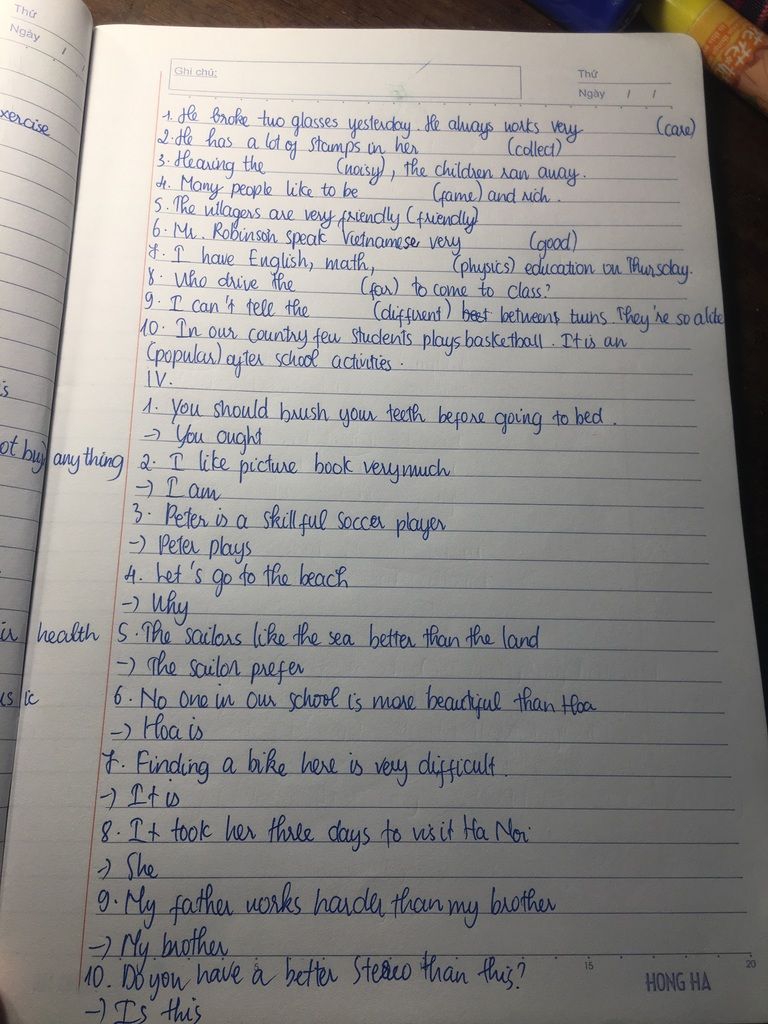 Thứ
Ngày / /
xercise
s
ot buy anything
health
Ghi chú:
Thứ
Ngày / /
1. He broke two glasses yesterday. He always works very (care)
2. He has a lot of stamps in her (collect)
3. Hearing the (noisy), the children ran away.
4. Many people like to be (fame) and rich.
5. The villagers are very friendly (friendly)
6. Mr. Robinson speak Vietnamese very (good)
7. I have English, math, (physics) education on Thursday.
8. Who drive the (far) to come to class?
9. I can't tell the (different) between twins. They're so alike
10. In our country few students plays basketball. It is an
(popular) after school activities.
IV.
1. You should brush your teeth before going to bed.
-> You ought
2. I like picture book very much
-> I am
3. Peter is a skillful soccer player
-> Peter plays
4. Let's go to the beach
-> Why
5. The sailors like the sea better than the land
-> The sailor prefer
6. No one in our school is more beautiful than Hoa
-> Hoa is
7. Finding a bike here is very difficult.
-> It is
8. It took her three days to visit Ha Noi
-> She
9. My father works harder than my brother
-> My brother
10. Do you have a better stereo than this?
-> Is this
15
20
HONG HA